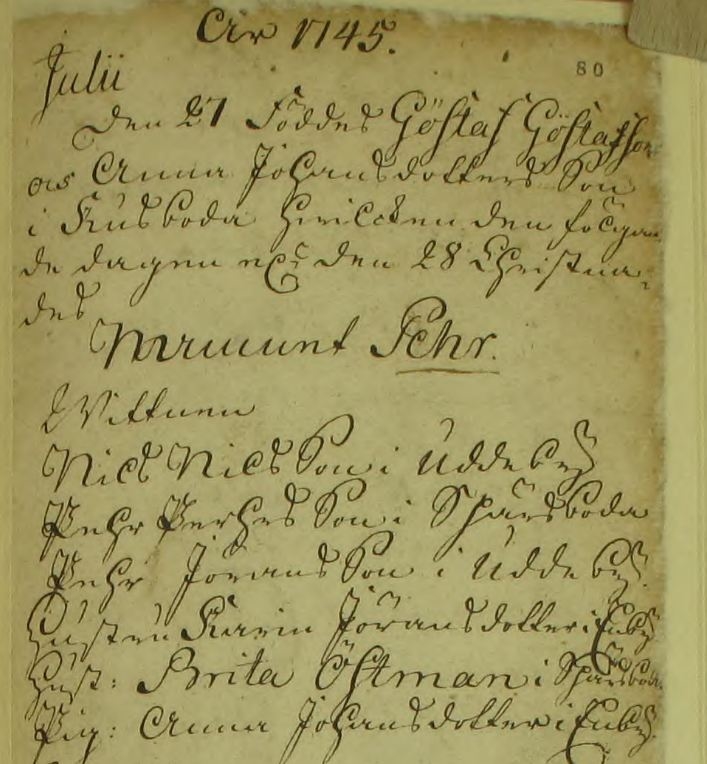 Åhr 1745.
80
Julii
Den 27 Föddes Göstaf Göstafson
os Anna Johansdotters Son
i Kusboda hvilcken den fölgan
de dagen nel: den 28 Christna,
des
Namnet Pehr.
Wittnen
Nils Nils Son i Uddeby
Pehr Perhrs Son i Spärsboda
Pehr Jörans Son i Uddeby
Hustru Karin Jöransdotter i Enby
Hust: Brita Östman i Spärsboda
Pig: Anna Johansdotter i Enby